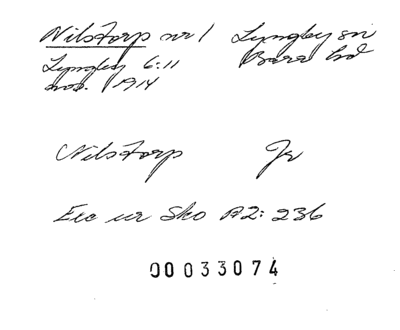 Nilstorp nr 1 Lyngby sn
Lyngby 6:11 Bara hd
nov. 1914
Nilstorp Jr
Exc ur Sko A2: 236
00033074